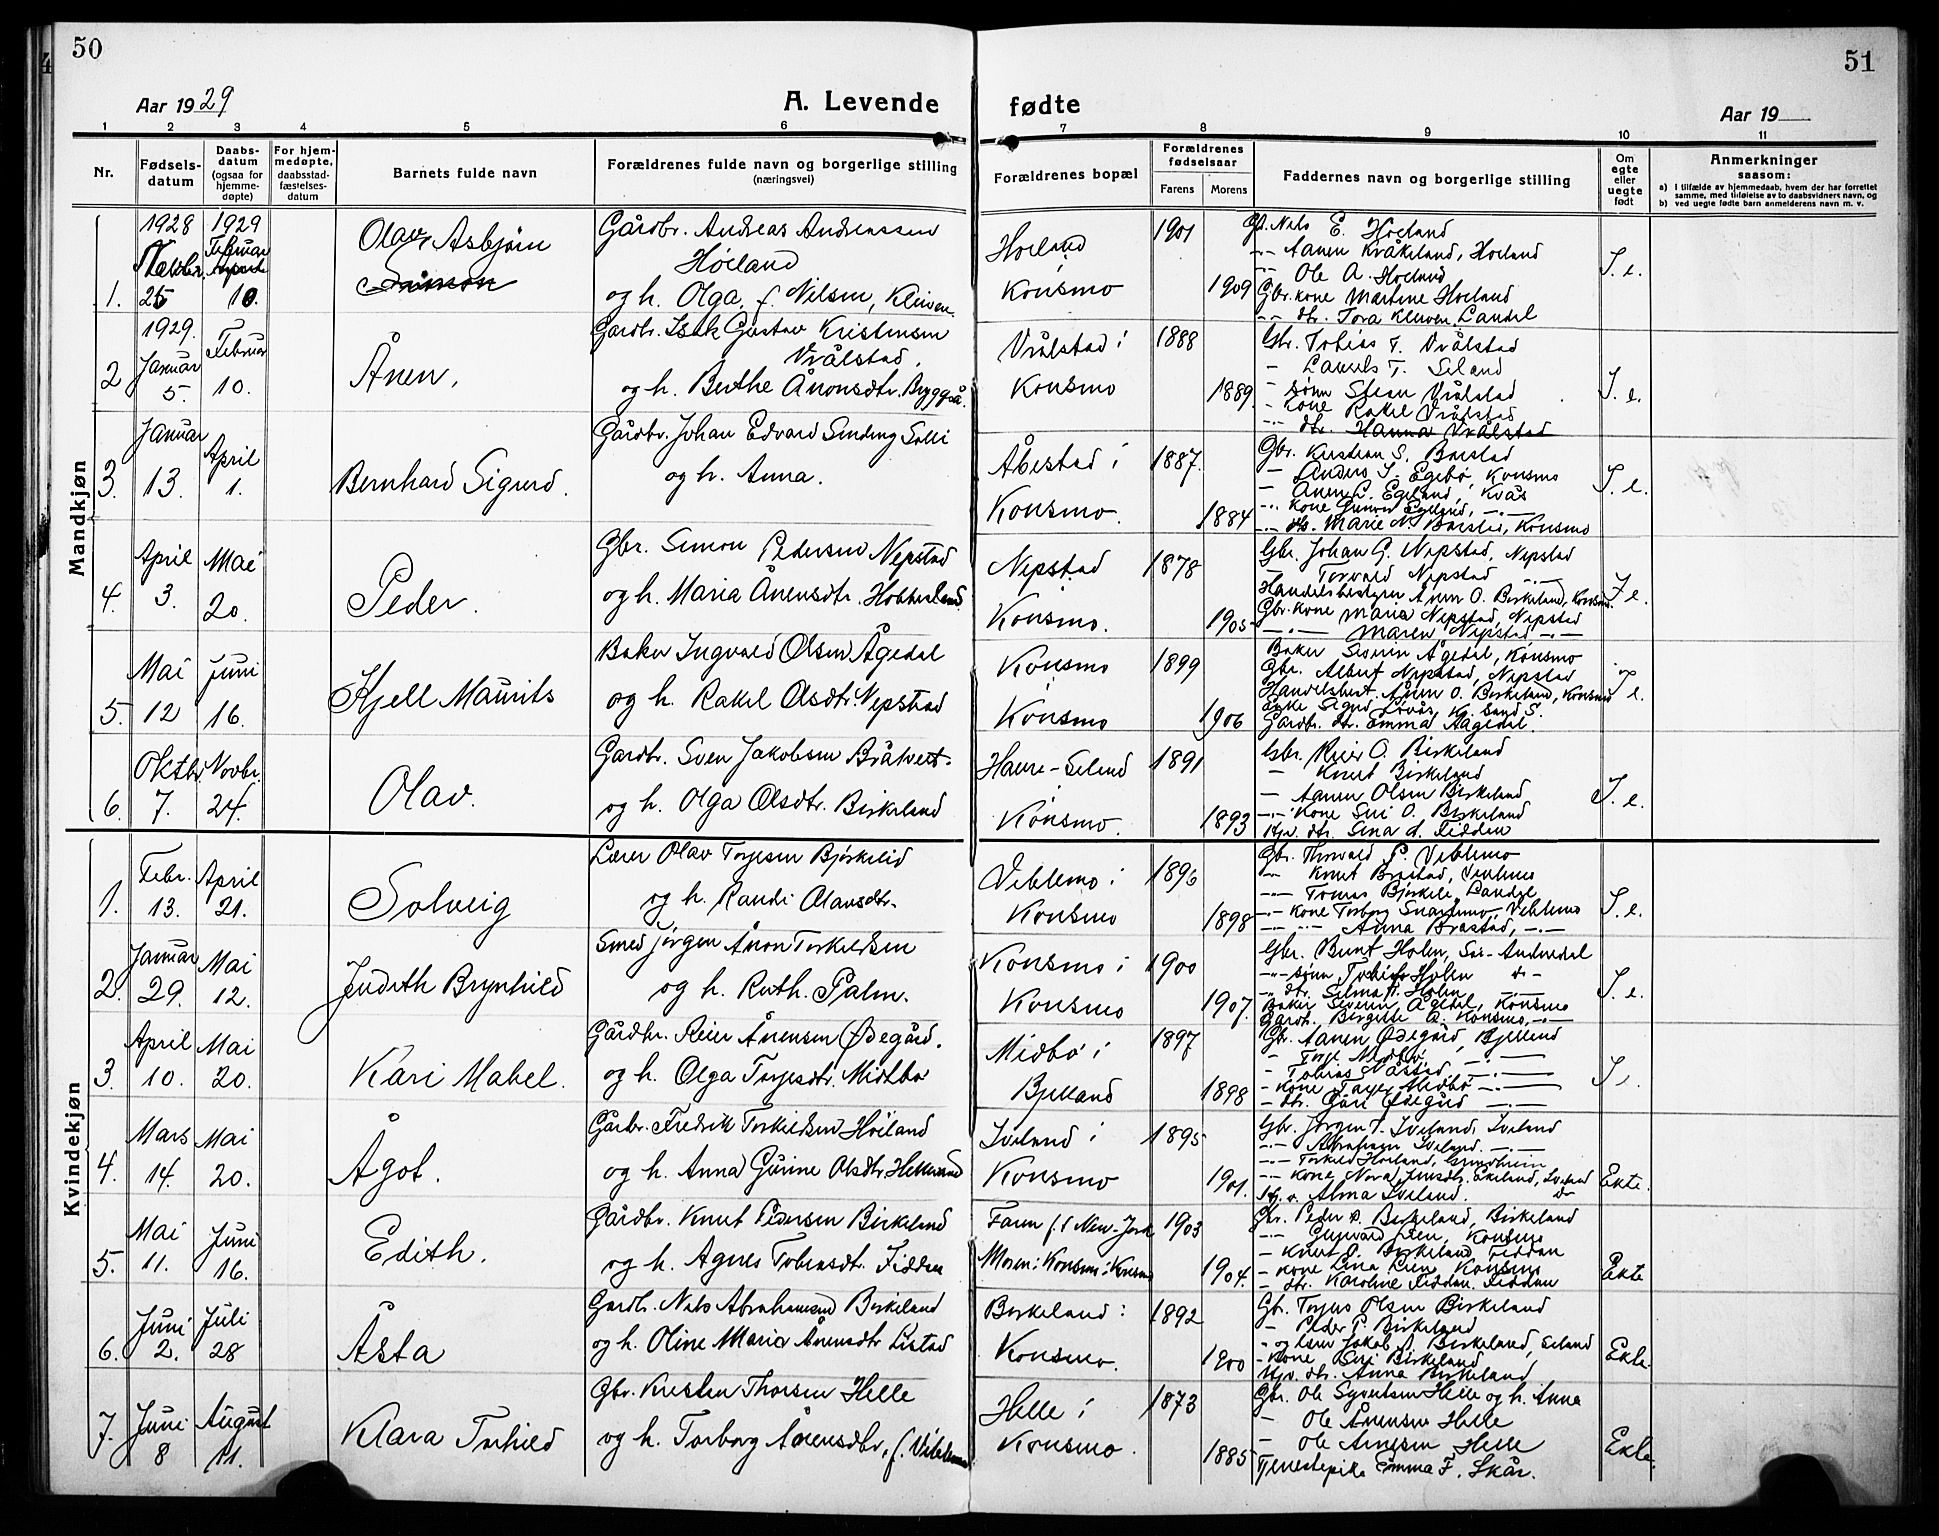 50
51
Aar 1929
A. Levende fødte
Aar 19
1 2 3 4 5 6 7 8 9 10 11
Nr.
Fødsels-
datum
Daabs-
datum
(ogsaa for
hjemme-
døpte)
For hjem-
medøpte,
daabsstad-
fæstelses-
datum
Barnets fulde navn
Forældrenes fulde navn og borgerlige stilling
(næringsvei)
Forældrenes bopæl
Forældrenes
fødselsaar
Farens Morens
Faddernes navn og borgerlige stilling
Om
egte
eller
uegte
født
Anmerkninger
saasom:
a) I tilfælde av hjemmedaab, hvem der har forrettet
samme, med tilføielse av to daabsvidners navn, og
b) ved uegte fødte barn anmelderens navn m. v.
Mandkjøn
1.
1928
25
1929
Februar
10.
Olav Asbjørn
Gårdbr. Andreas Andreassen
Høiland
og h. Olga, f. Nilsen, Kleiven
Hoiland
Konsmo
1901
1909
Gb. Nils E. Hoiland
Aanen Kråkeland, Hoiland
Ole A. Hoiland
Gbr. kone Martine Hoiland
dtr. Tora Kleiven, Landal
I. e.
2
1929.
Januar
5.
Februar
10.
Ånen.
Gardbr. Isak Gustav Kristensen
Vrålstad.
og h. Berthe Ånonsdtr. Bryggså.
Vrålstad i
Konsmo
1888
1889.
Gbr. Tobias T. Vrålstad
- Laurits T. Seland
- sønn Stian Vrålstad
- kone Rakel Vrålstad
dtr. Hanna Vrålstad
I. e.
3.
Januar
13.
April
1.
Bernhard Sigurd.
Gårdbr. Johan Edvard Sinding Solli
og h. Anna.
Åbestad i
Konsmo.
1887.
1884
Gbr. Kristian S. Barstad
- Anders I. Egebø, Konsmo
- Anen L. Egeland, Kvås
- kone Gunvor Egeland,
dtr. Marie N. Barstad, Konsmo
I. e.
4.
April
3.
Mai
20.
Peder.
Gbr. Simon Pedersen Nepstad
og h. Maria Ånensdtr. Hobbesland.
Nepstad
Konsmo.
1878
1905
Gbr. Johan G. Nepstad, Nepstad
- Torvald Nepstad
Handelsbestyrer Ånen O. Birkeland, Konsmo.
Gbr. kone Maria Nepstad, Nepstad
Maren Nepstad
I e.
5.
Mai
12
Juni
16.
Kjell Maurits
Baker Ingvald Olsen Ågedal
og h. Rakel Olsdtr. Nepstad
Konsmo
Konsmo
1899
1906
Baker Severin Ågedal, Konsmo
Gbr. Albert Nepstad, Nepstad
Handelsbest. Ånen O. Birkeland, Konsmo
Gardbr. dtr. Emma Aagedal.
I e.
6.
Oktbr
7.
Novbr.
24.
Olav.
Gardbr. Sven Jakobsen Bråtveit
og h. Olga Olsdtr. Birkeland
Haure-Seland
Konsmo.
1891
1893
Gbr. Reier O. Birkeland
- Knut Birkeland
- Aanen Olsen Birkeland
kone Siri O. Birkeland
Hjv. dtr. Sina A. Fidden
I. e.
Kvindekjøn
1.
Febr.
13.
April
21.
Solveig
Lærer Olav Torjesen Bjørkelid
og h. Randi Olavsdtr.
Veblemo i
Konsmo
1896
1898
Gbr. Thorvald P. Veblemo
Knut Brastad, Veblemo
Tomas Bjørkeli, Landal
kone Torborg Snartemo, Veblemo
Anna Brastad,
I. e.
2.
Januar
29.
Mai
12.
Judith Brynhild
Smed Jörgen Ånon Torkildsen
og h. Ruth. Palm.
Konsmo i
Konsmo
1900
1907.
Gbr. Bernt Holen, Sør-Audnedal
sønn Tobias Holen do
dtr. Selma H. Holen
Baker Severin Ågedal, Konsmo
Gardbr. Birgitte A. Konsmo,
I. e.
3.
April
10.
Mai
20.
Kari Mabel.
Gårdbr. Reier Ånensen Ødegård.
og h. Olga Torjesdtr. Midtbø
Midbø i
Bjelland
1897
1898
Gbr. Aanen Ødegård, Bjelland
- Torje Midbø
- Tobias Nåstad,
- kone Tarjer Midbø
- dtr. Guri Ødegård
4.
Mars
14.
Mai
20.
Ågot.
Gårbr. Fredrik Torkildsen Höiland
og h. Anna Gurine Olsdtr. Hellesund
Iveland i
Konsmo
1895
1901.
Gbr. Jörgen T. Iveland, Iveland
Abraham Iveland.
Torkild Hoiland, Grindheim
kone Nora Jensdtr. Ekeland, Iveland
Alma Iveland.
Ekte.
5.
Mai
11.
Juni
16.
Edith.
Gårdbr. Knut Pedersen Birkeland
og h. Agnes Tobiasdtr. Fidden
Faren f. i New-York
Moren: Konsmo i Konsmo
1903
1904.
Gbr. Peder P. Birkeland, Birkeland
Gunvald Lien, Konsmo
- Knut O. Birkeland, Fiddan
- kone Lina Lien Konsmo
- dtr. Karoline Fiddan. Fiddan
Ekte
6.
Juni
2.
Juli
28
Åsta
Gardbr. Nils Abrahamsen Birkeland
og h. Oline Maria Ånensdtr Listad
Birkeland:
Konsmo.
1892
1900
Gbr. Torjus Olsen Birkeland
- Peder P. Birkeland
Jakob J. Birkeland, Seland
- kone Siri Birkeland
Hjv. dtr. Anna Birkeland
Ekte
7.
Juni
8
August
11.
Klara Torhild
Gbr. Kristen Thorsen Helle
og h. Torborg Ånensdtr, f. Viblemo
Helle i
Konsmo.
1873
1885
Gbr. Ole Syvertsen Helle og h. Anna
- Ole Ånensen Helle
- Ole Arnesen Helle
Tjenestepike Emma F. Skår.
Ekte.